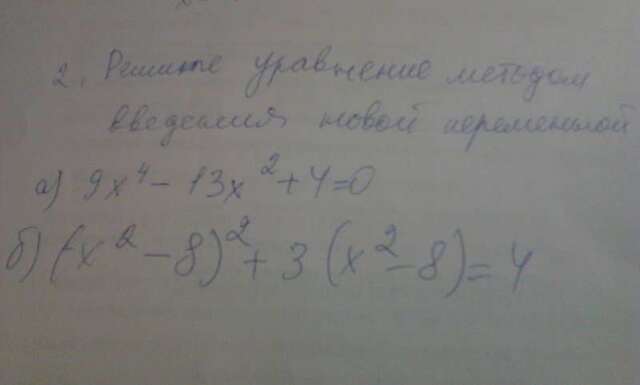 2. Решите уравнение методом
введения новой переменной
а) 9x⁴ - 13x² + 4 = 0
б) (x² - 8)² + 3(x² - 8) = 4